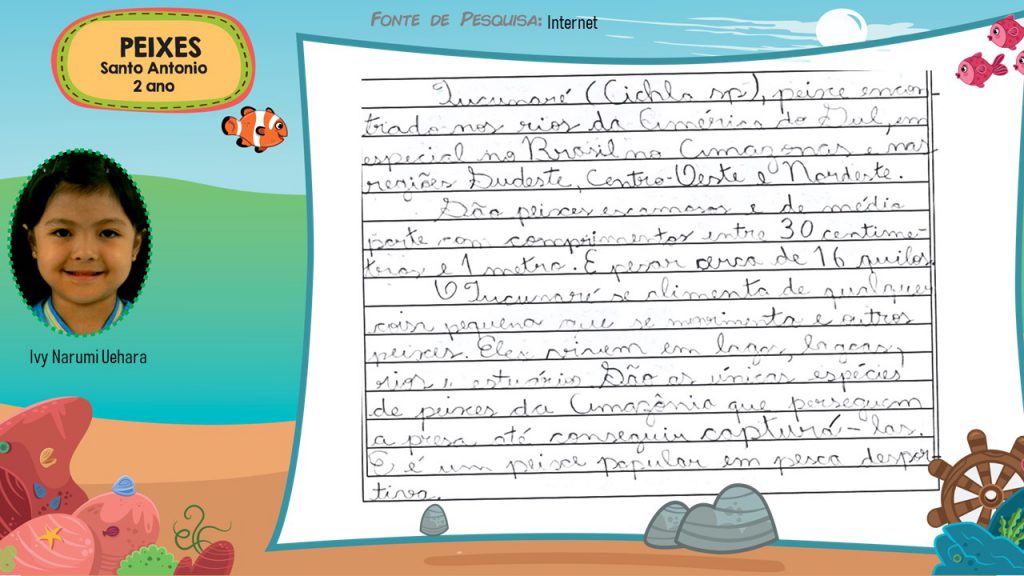 FONTE DE PESQUISA: Internet
PEIXES
Santo Antonio
2 ano
Tucunaré (Cichla sp), peixe encon
trado nos rios da América do Sul, em
especial no Brasil no Amazonas e nas
regiões Sudeste, Centro-Oeste e Nordeste.
São peixes escamosos e de médio
porte com comprimentos entre 30 centíme-
tros e 1 metro. E pesar cerca de 16 quilos.
O Tucunaré se alimenta de qualquer
coisa pequena que se movimenta e outros
peixes. Eles vivem em lagos, lagoas,
rios e estuários. São as únicas espécies
de peixes da Amazônia que perseguem
a presa até conseguir capturá-las.
E é um peixe popular em pesca despor
tiva.
Ivy Narumi Uehara